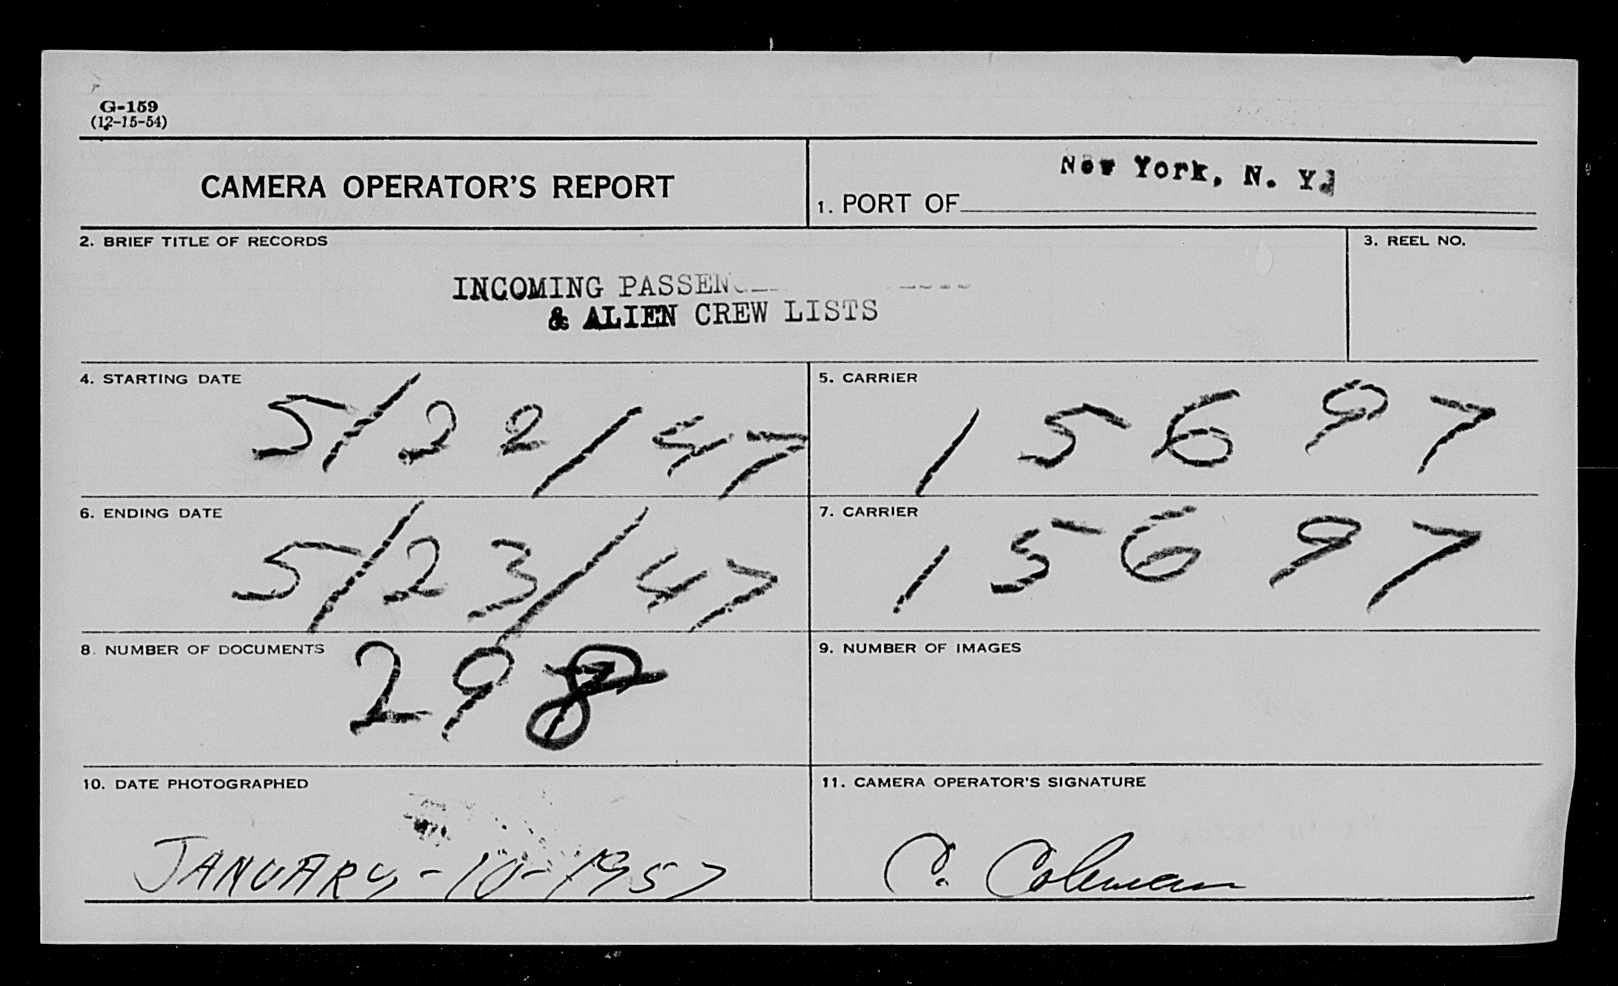 G-159
(12-15-54)
CAMERA OPERATOR'S REPORT
1. PORT OF New York, N. Y.
2. BRIEF TITLE OF RECORDS
3. REEL NO.
INCOMING
& ALIEN CREW LISTS
4. STARTING DATE
5/22/47
5. CARRIER
15697
6. ENDING DATE
5/23/47
7. CARRIER
15697
8. NUMBER OF DOCUMENTS
298
9. NUMBER OF IMAGES
10. DATE PHOTOGRAPHED
JANUARY-10-1957
11. CAMERA OPERATOR'S SIGNATURE
C. Coleman